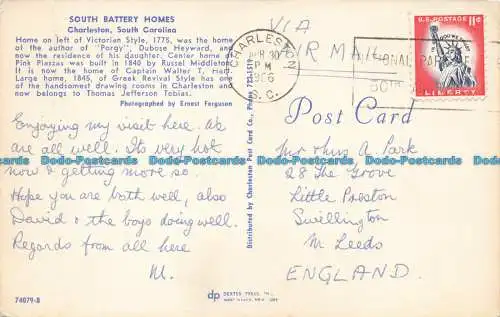 SOUTH BATTERY HOMES
Charleston, South Carolina
Home on left of Victorian Style, 1775, was the home
of the author of "Porgy", Dubose Heyward, and
now the residence of his daughter. Center home of
Pink Piazzas was built in 1840 by Russel Middleton
It is now the home of Captain Walter T. Hart.
Large home, 1845, of Greek Revival Style has one
of the handsomest drawing rooms in Charleston and
now belongs to Thomas Jefferson Tobias.
Photographed by Ernest Ferguson
Enjoying my visit here. As
are all well. Its very hot
now & getting more so
Hope you are both well, also
David & the boys doing well.
Regards from all here
M.
74079-B
Distributed by Charleston Post Card Co., Phone 723-1519
dp DEXTER PRESS, INC.
WEST NYACK, NEW YORK
VIA
AIR MAIL
CHARLESTON
APR 30
PM
1966
S.C.
NATIONAL PARK
U.S. POSTAGE 11¢
IN GOD WE TRUST
LIBERTY
Post Card
Mr & Mrs A Park
28 The Grove
Little Preston
Swillington
Nr Leeds
ENGLAND.
Dodo-Postcards Dodo-Postcards Dodo-Postcards Dodo-Postcards Dodo-Postcards